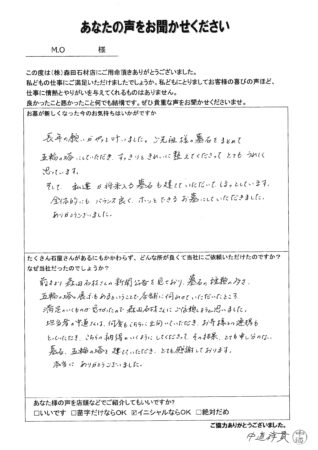 あなたの声をお聞かせください
M.O 様
この度は(株)森田石材店にご用命頂きありがとうございました。
私どもの仕事にご満足いただけましたでしょうか。私どもにとりましてお客様の喜びの声ほど、
仕事に情熱とやりがいを与えてくれるものはありません。
良かったこと悪かったこと何でも結構です。ぜひ貴重な声をお聞かせくださいませ。
お墓が新しくなった今のお気持ちはいかがですか
長年の願いがやっと叶いました。ご先祖様の墓石をまとめて
五輪の塔にしていただき、すっきりときれいに整えてくださって とてもうれしく
思っています。
そして 私達が将来入る墓石も建てていただいて ほっとしています。
全体的にも バランス良く、ホッとできるお墓にしていただきました。
ありがとうございました。
たくさん石屋さんがあるにもかかわらず、どんな所が良くて当社にご依頼いただけたのですか?
なぜ当社だったのでしょうか?
前まえより 森田石材さんの新聞広告を見ており、墓石の種類の多さ、
五輪の塔の展示もあるということで店舗に伺わせていただいたところ
満足のいくものが見つかったので森田石材さんにお依頼しようと思いました。
担当者の中道さんは、何度もこちらに出向いていただき、お寺様との連携も
とっていただき、こちらの納得がいくようにしてくださって、その結果、とても申し分のない
墓石、五輪の塔を建てていただき、とても感謝しております。
本当に ありがとうございました。
あなた様の声を店頭などでご紹介してもいいですか?
□いいです □苗字だけならOK ☑イニシャルならOK □絶対だめ
ご協力ありがとうございました。
中道